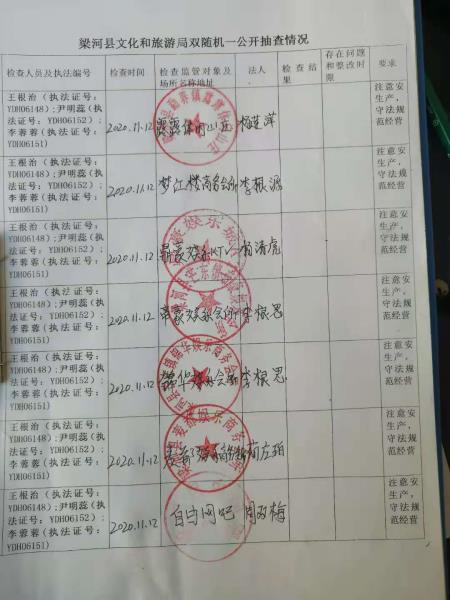 梁河县文化和旅游局双随机一公开抽查情况
检查人员及执法编号 检查时间 检查监管对象及场所名称地址 法人 检查结果 存在问题和整改时限 要求
王根治（执法证号：
YDH06148）;尹明蕊（执
法证号：YDH06152）;
李蓉蓉（执法证号：
YDH06151)
2020.11.12
露露休闲山庄
杨莲萍
注意安
生产，
守法规
范经营
王根治（执法证号：
YDH06148）;尹明蕊（执
法证号：YDH06152）;
李蓉蓉（执法证号：
YDH06151)
2020.11.12
梦江楼商务会所
李根源
注意安
生产，
守法规
范经营
王根治（执法证号：
YDH06148）;尹明蕊（执
法证号：YDH06152）;
李蓉蓉（执法证号：
YDH06151)
2020.11.12
豪娱乐KTV
杨清虎
注意安
生产，
守法规
范经营
王根治（执法证号：
YDH06148）;尹明蕊（执
法证号：YDH06152）;
李蓉蓉（执法证号：
YDH06151)
2020.11.12
娱乐会所
李根思
注意安
生产，
守法规
范经营
王根治（执法证号：
YDH06148）;尹明蕊（执
法证号：YDH06152）;
李蓉蓉（执法证号：
YDH06151)
2020.11.12
锦华
会所
李根思
注意安
生产，
守法规
范经营
王根治（执法证号：
YDH06148）;尹明蕊（执
法证号：YDH06152）;
李蓉蓉（执法证号：
YDH06151)
2020.11.12
麦
注意安
生产，
守法规
范经营
王根治（执法证号：
YDH06148）;尹明蕊（执
法证号：YDH06152）;
李蓉蓉（执法证号：
YDH06151)
2020.11.12
网吧
周
梅
注意安
生产，
守法规
范经营